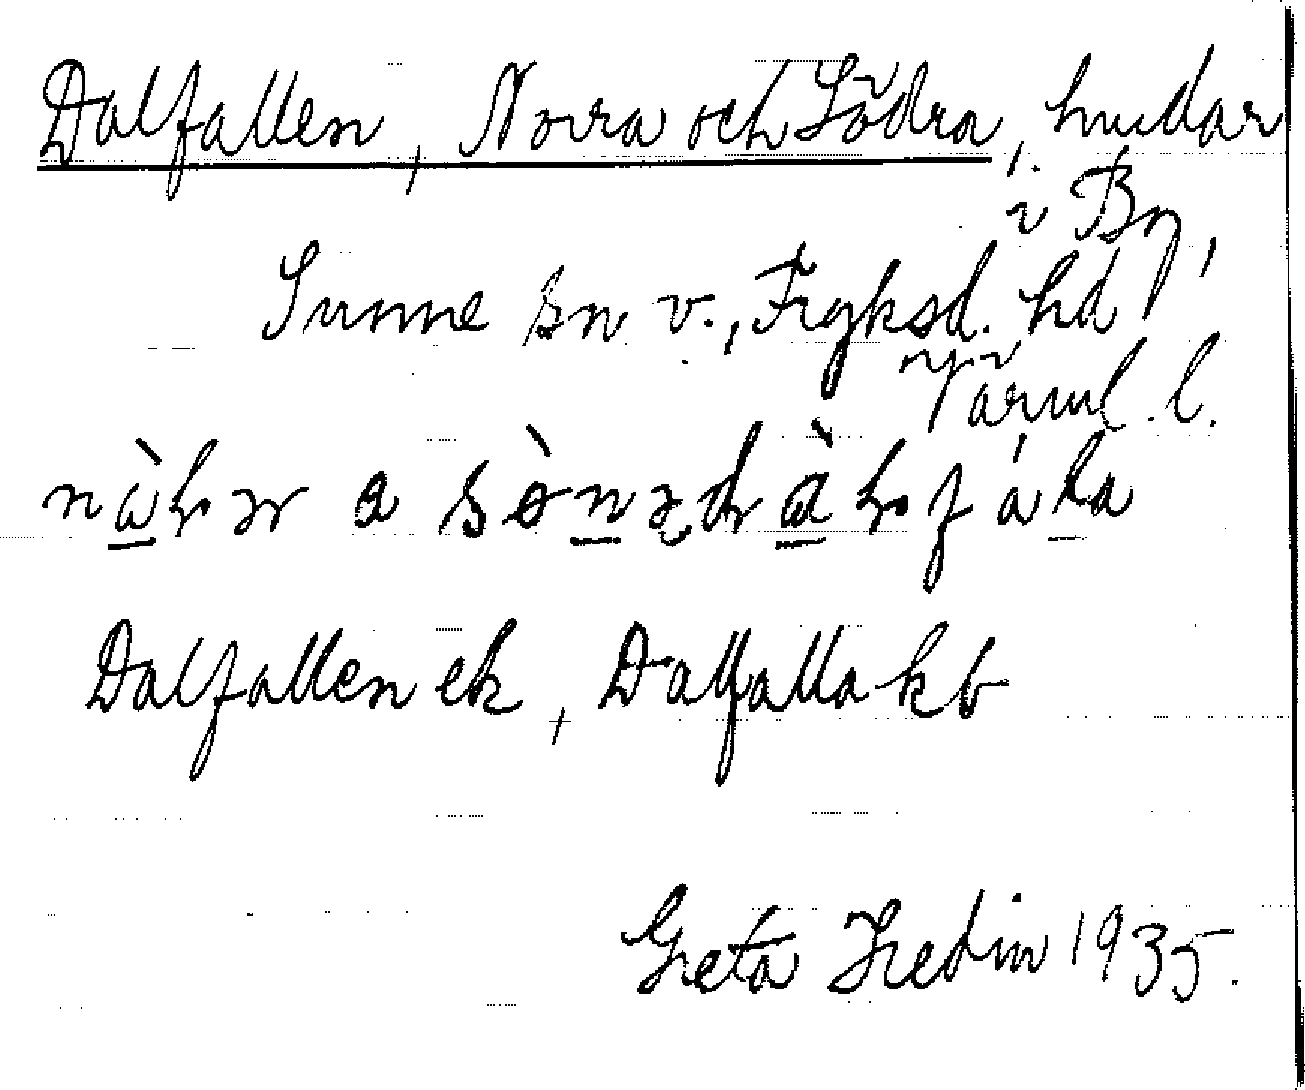 Dalfallen, Norra och Södra, hudar
i By,
Sunne sn v., Fryksd. hd
Värml. l.
Dalfallen ek, Dalfalla kb
Greta Hedin 1935.